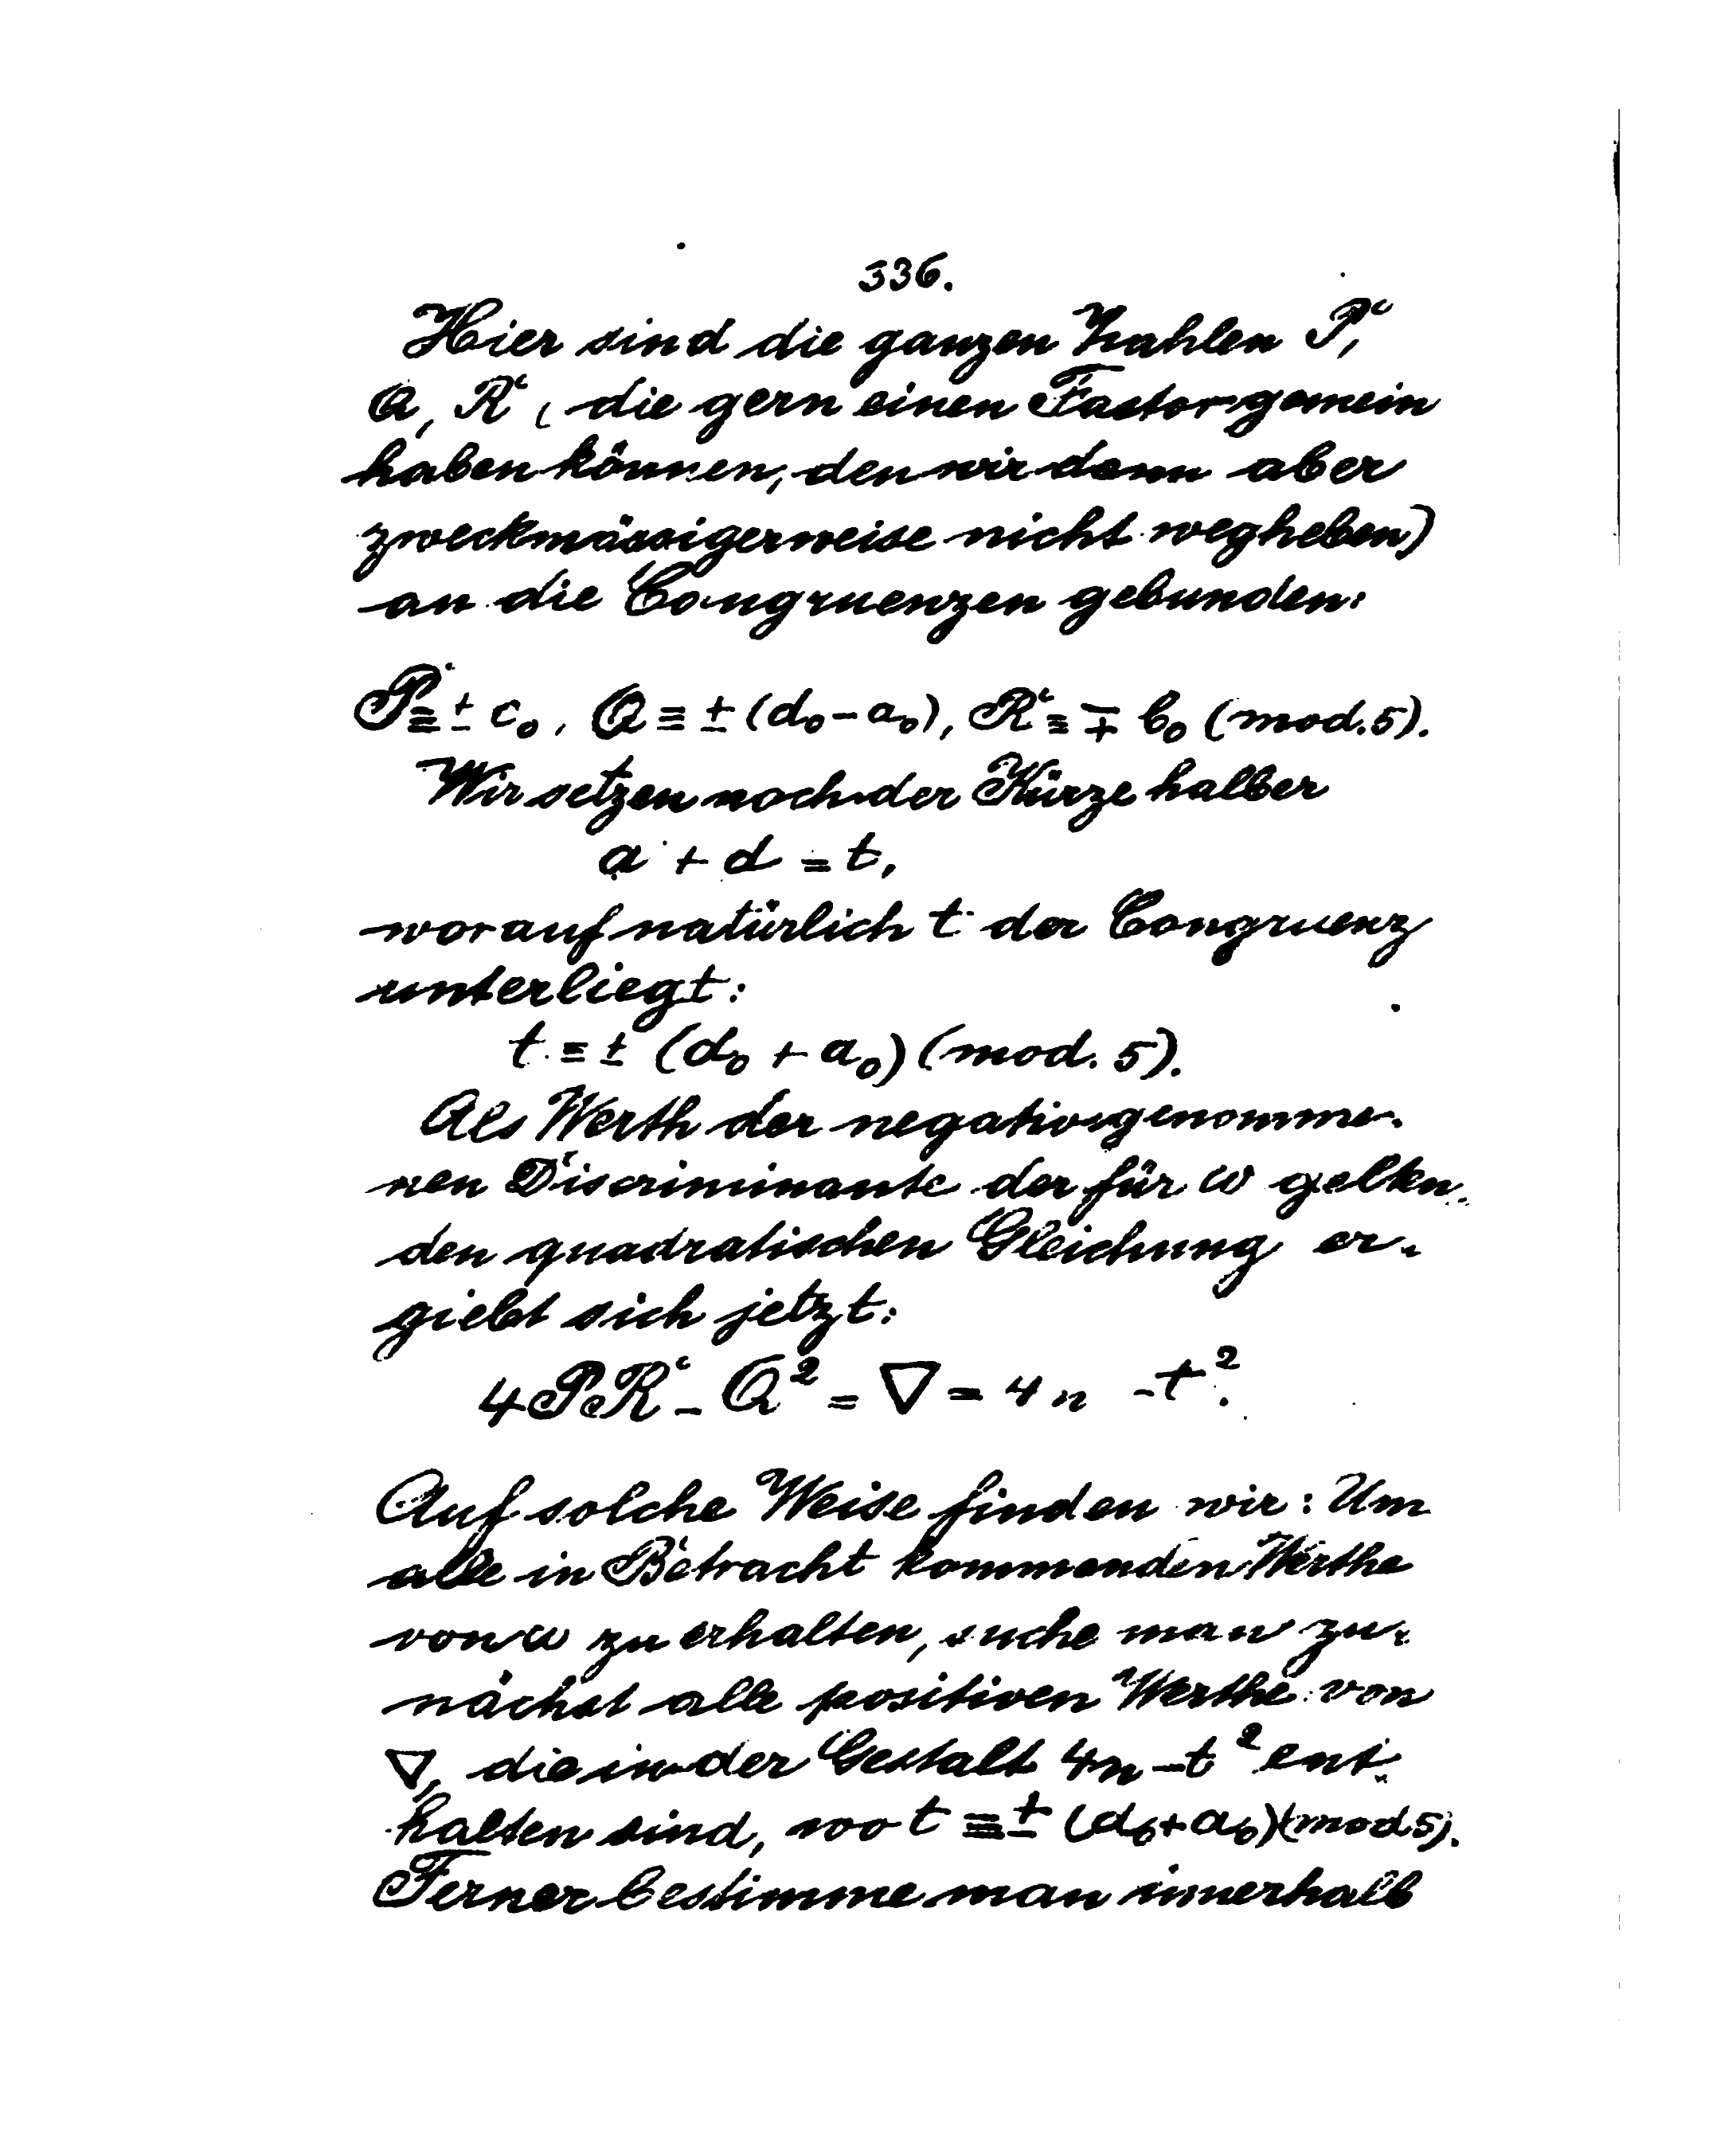 336.
Hier sind die ganzen Zahlen P,
Q, R ( die gern einen Factor gemein
haben können, den wir dann aber
zweckmässigerweise nicht wegheben)
an die Congruenzen gebunden:
P ≡ ± c₀, Q ≡ ± (d₀ - a₀), R ≡ ∓ b₀ (mod. 5).
Wir setzen noch der Kürze halber
a + d = t,
worauf natürlich t der Congruenz
unterliegt:
t ≡ ± (d₀ + a₀) (mod. 5).
Als Werth der negativ genomme-
nen Discriminante der für ω gelten-
den quadratischen Gleichung er-
giebt sich jetzt:
4PR - Q² = ∇ = 4n - t².
Auf solche Weise finden wir: Um
alle in Betracht kommenden Werthe
von ω zu erhalten, suche man zu-
nächst alle positiven Werthe von
∇, die in der Gestalt 4n - t² ent-
halten sind, wo t ≡ ± (d₀ + a₀) (mod 5).
Ferner bestimme man innerhalb